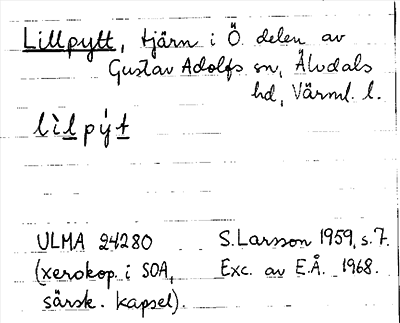 Lillpytt, tjärn i Ö delen av
Gustav Adolfs sn, Älvdals
hd, Värml. l.
lìlpýt
ULMA 24280 S. Larsson 1959, s. 7.
(xerokop. i SOA, Exc. av E.Å. 1968.
särsk. kapsel).